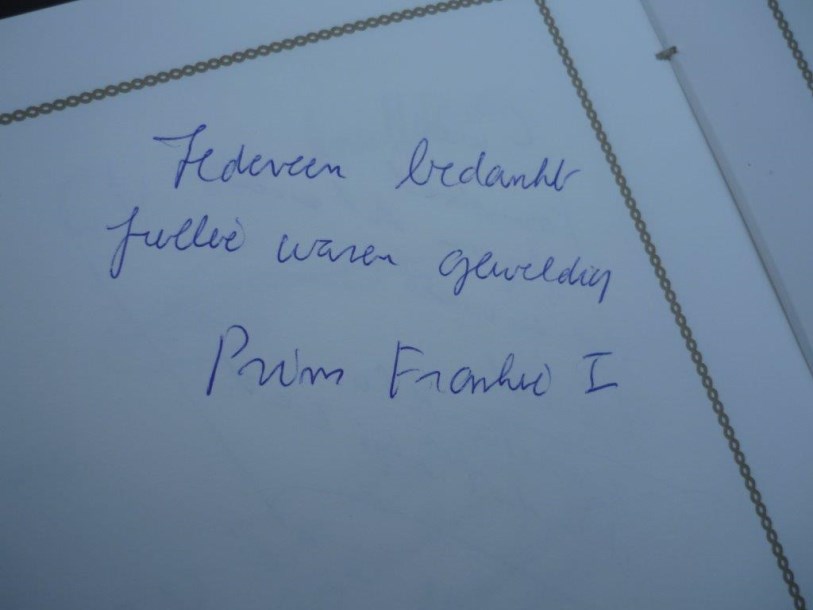 Iedereen bedankt
Jullie waren geweldig
Prins Frankie I